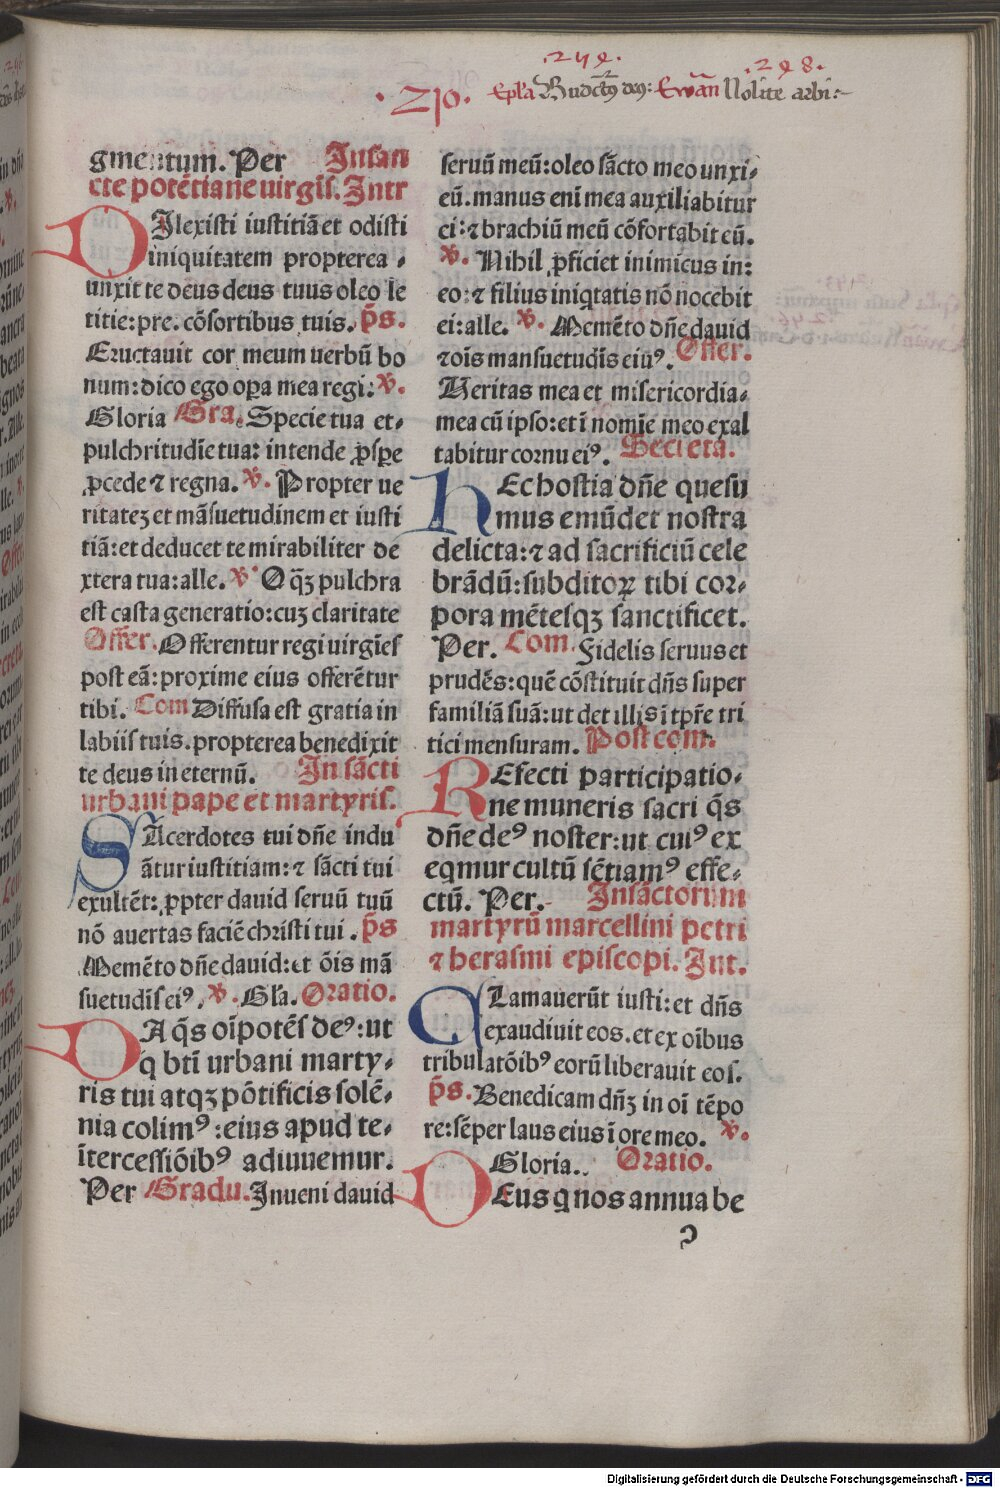 .Z10.
Ep̄la Bn̄dictꝰ deꝰ: Ewan̄ Nolite arbi:~
.248.
gmentum. Per In san
cte potētiane uirgīs. Intr
DIlexisti iustitiā et odisti
iniquitatem propterea ,
unxit te deus deus tuus oleo le
titie: pre. cōsortibus tuis. p̄s.
Eructauit cor meum uerbū bo
num: dico ego opa mea regi: ℣.
Gloria Gra. Specie tua et,
pulchritudīe tua: intende ꝓspe
ꝓcede ⁊ regna. ℣. Propter ue
ritateꝫ et māsuetudinem et iusti
tiā: et deducet te mirabiliter de
xtera tua: alle. ℣. O qꝫ pulchra
est casta generatio: cuꝫ claritate
Offer. Offerentur regi uirgīes
post eā: proxime eius offerētur
tibi. Com Diffusa est gratia in
labiis tuis. propterea benedixit
te deus in eternū. In sācti
urbani pape et martyris.
SAcerdotes tui dn̄e indu
ātur iustitiam: ⁊ sācti tui
exultēt: ꝓpter dauid seruū tuū
nō auertas faciē christi tui. p̄s
Memēto dn̄e dauid: et ōis mā
suetudīs eiꝰ. ℣. Gl̄a. Oratio.
DA q̄s oīpotēs deꝰ: ut
q bt̄i urbani marty,
ris tui atqꝫ pōtificis solē,
nia colimꝰ: eius apud te,
ītercessiōibꝰ adiuuemur.
Per Gradu. Inueni dauid
seruū meū: oleo sācto meo unxi,
eū. manus enī mea auxiliabitur
ei: ⁊ brachiū meū cōfortabit eū.
℣. Nihil ꝓficiet inimicus in:
eo: ⁊ filius iniqtatis nō nocebit
ei: alle. ℣. Memēto dn̄e dauid
⁊ ois mansuetudīs eiuꝰ. Offer.
Veritas mea et misericordia,
mea cū ipso: et ī nomīe meo exal
tabitur cornu eiꝰ. Secreta.
HEc hostia dn̄e quesu
mus emūdet nostra
delicta: ⁊ ad sacrificiū cele
brādū: subditoꝝ tibi cor,
pora mētesqꝫ sanctificet.
Per. Com. Fidelis seruus et
prudēs: quē cōstituit dn̄s super
familiā suā: ut det illis ī tp̄re tri
tici mensuram. Post com.
REfecti participatio,
ne muneris sacri q̄s
dn̄e deꝰ noster: ut cuiꝰ ex
eqmur cultū sētiamꝰ effe,
ctū. Per. In sāctorum
martyrū marcellini petri
⁊ herasmi episcopi. Int.
CLamauerūt iusti: et dn̄s
exaudiuit eos. et ex oībus
tribulatōibꝰ eorū liberauit eos.
p̄s. Benedicam dn̄ꝫ in oī tēpo
re: sēper laus eius ī ore meo. ℣.
Gloria.. Oratio.
DEus q nos annua be
Digitalisierung gefördert durch die Deutsche Forschungsgemeinschaft - DFG